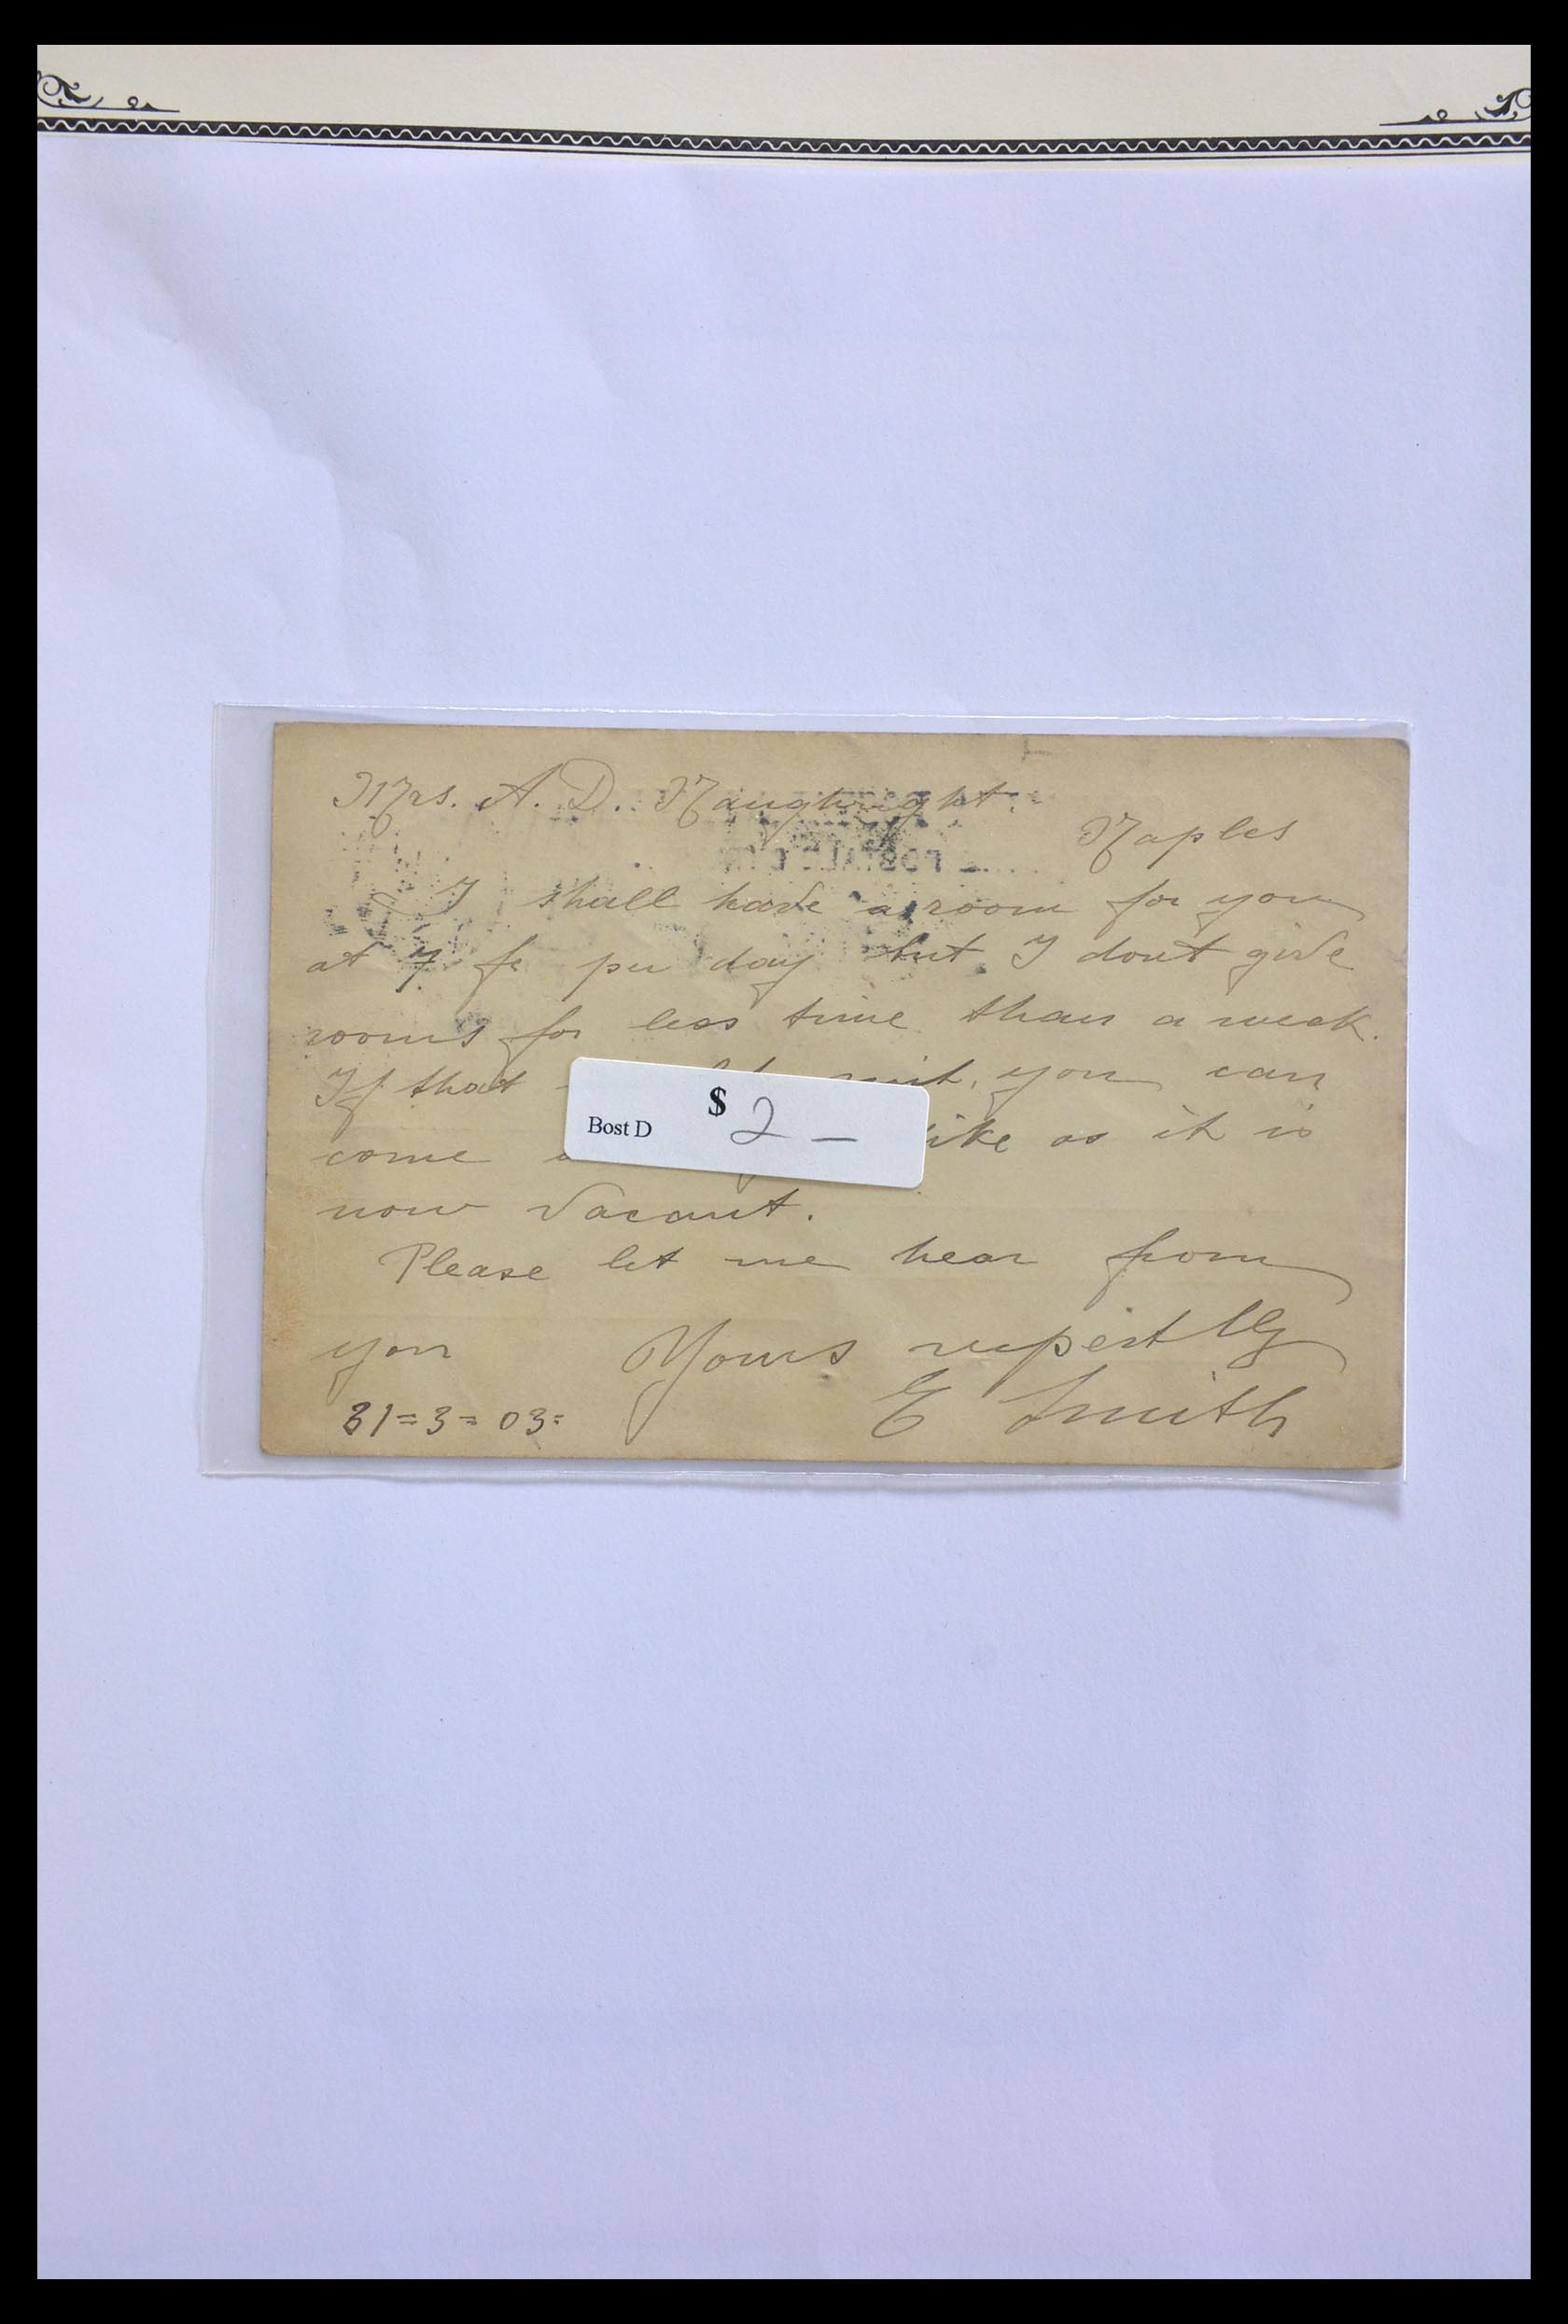 Mrs. A. D. Naughright
Naples
I shall have a room for you
at 7 fc per day but I dont give
rooms for less time than a week.
If that suit, you can
come like as it is
now vacant.
Please let me hear from
you Yours respectlly
E Smith
31=3=03=
Bost D $ 2 —